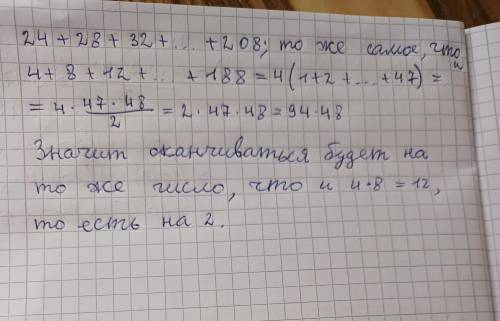 24+28+32+...+208; то же самое, что и
4+8+12+...+188=4(1+2+...+47)=
=4·47·48/2=2·47·48=94·48
Значит оканчиваться будет на
то же число, что и 4·8=12,
то есть на 2.